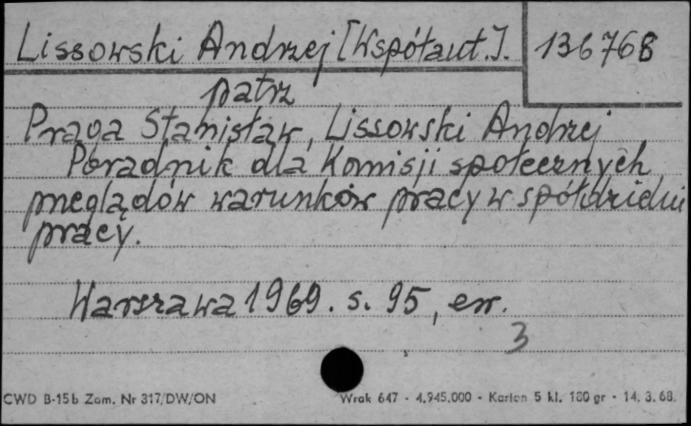 Lissowski Andrzej [Współaut.].
136768
patrz
Praga Stanisław, Lissowski Andrzej
Poradnik dla Komisji społecznych
przeglądów warunków pracy w spółdzielni
pracy.
Warszawa 1969. s. 95, err.
3
CWD B-15b Zam. Nr 317/DW/ON
Wrak 647 - 4.945.000 - Karton 5 kl. 180 gr - 14. 3. 68.